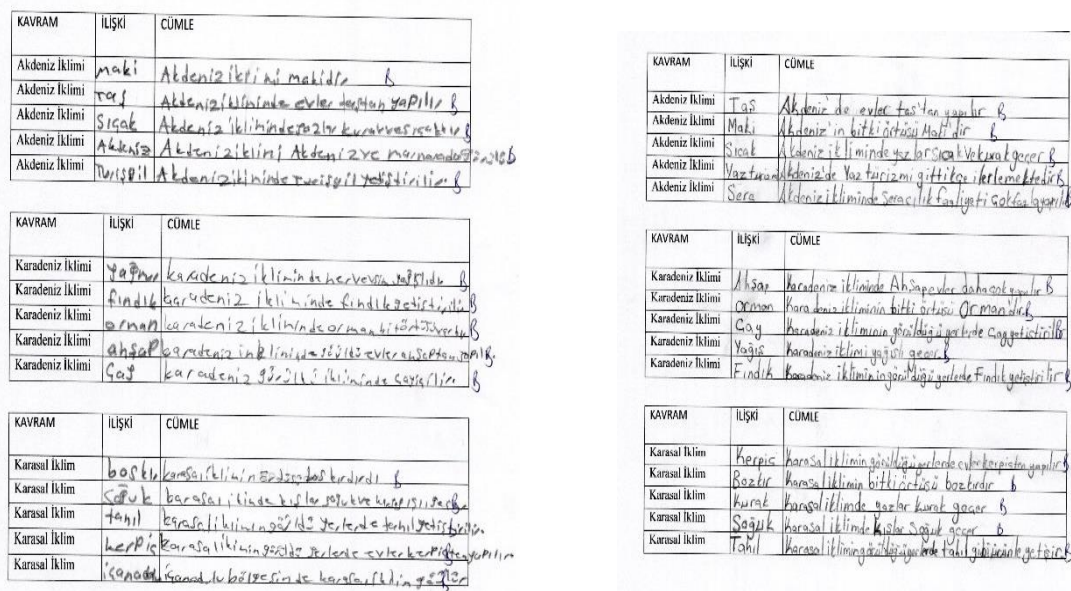 KAVRAM İLİŞKİ CÜMLE
Akdeniz İklimi maki Akdeniz iklimi makidir B
Akdeniz İklimi Taş Akdeniz ikliminde evler taştan yapılır B
Akdeniz İklimi Sıcak Akdeniz ikliminde yazlar kurak ve sıcaktır B
Akdeniz İklimi Akdeniz Akdeniz iklimi Akdeniz ve marmarada B
Akdeniz İklimi Turişgil Akdeniz ikliminde turişgil yetiştirilir B
KAVRAM İLİŞKİ CÜMLE
Karadeniz İklimi yağmur karadeniz ikliminde her B
Karadeniz İklimi fındık karadeniz ikliminde fındık yetiştirilir B
Karadeniz İklimi orman karadeniz ikliminde orman B
Karadeniz İklimi ahşap karadeniz evler ahşaptan yapılır B
Karadeniz İklimi Çay karadeniz ikliminde B
KAVRAM İLİŞKİ CÜMLE
Karasal İklim karasal iklimin B
Karasal İklim Soğuk kışlar soğuk ve B
Karasal İklim tahıl karasal yerlerde tahıl
Karasal İklim kerpiç yerlerde evler yapılır
Karasal İklim bölgesinde karasal B
KAVRAM İLİŞKİ CÜMLE
Akdeniz İklimi Taş Akdeniz'de evler taş'tan yapılır B
Akdeniz İklimi Maki Akdeniz'in bitki örtüsü Maki'dir B
Akdeniz İklimi Sıcak Akdeniz ikliminde yazlar sıcak ve kurak geçer B
Akdeniz İklimi Akdeniz'de Yaz turizmi gittikçe ilerlemektedir B
Akdeniz İklimi Sera Akdeniz ikliminde Seracılık faaliyeti çok fazla yapılır B
KAVRAM İLİŞKİ CÜMLE
Karadeniz İklimi Ahşap Karadeniz ikliminde Ahşap evler daha çok yapılır B
Karadeniz İklimi Orman Karadeniz ikliminin bitki örtüsü Orman'dır B
Karadeniz İklimi Çay Karadeniz ikliminin görüldüğü yerlerde Çay yetiştirilir B
Karadeniz İklimi Yağış Karadeniz iklimi yağışlı geçer B
Karadeniz İklimi Fındık Karadeniz ikliminin görüldüğü yerlerde Fındık yetiştirilir B
KAVRAM İLİŞKİ CÜMLE
Karasal İklim Kerpiç Karasal iklimin görüldüğü yerlerde evler kerpiçten yapılır B
Karasal İklim Bozkır Karasal iklimin bitki örtüsü bozkırdır B
Karasal İklim Kurak Karasal iklimde yazlar kurak geçer B
Karasal İklim Soğuk Karasal iklimde kışlar Soğuk geçer B
Karasal İklim Tahıl Karasal iklimin görüldüğü yerlerde tahıl B